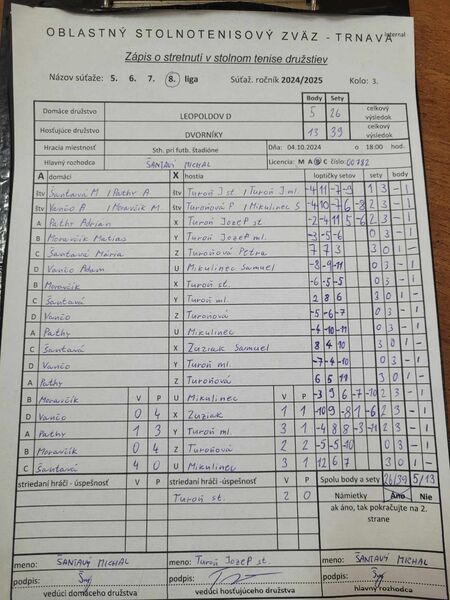 OBLASTNÝ STOLNOTENISOVÝ ZVÄZ - TRNAVA
Internal
Zápis o stretnutí v stolnom tenise družstiev
Názov súťaže: 5. 6. 7. 8. liga Súťaž. ročník 2024/2025 Kolo: 3.
Body Sety
Domáce družstvo LEOPOLDOV D 5 26 celkový výsledok
Hosťujúce družstvo DVORNÍKY 13 39 celkový výsledok
Hracia miestnosť Sth. pri futb. štadióne Dňa: 04.10.2024 o 18:00 hod.
Hlavný rozhodca ŠANTAVÝ MICHAL Licencia: M A B C číslo: 00782
A domáci X hostia loptičky setov sety body
štv Šantavá M / Pathy A štv Turoň J st. / Turoň J ml. -4 11 -7 -9 1 3 - 1
štv Vančo A / Moravčík M štv Turoňová P / Mikulinec S -4 10 -7 6 -8 2 3 - 1
A Pathy Adrian X Turoň Jozef st. -2 -4 11 5 -6 2 3 - 1
B Moravčík Matias Y Turoň Jozef ml. -3 -5 -6 0 3 - 1
C Šantavá Mária Z Turoňová Petra 7 7 3 3 0 1 -
D Vančo Adam U Mikulinec Samuel -8 -9 -11 0 3 - 1
B Moravčík X Turoň st. -6 -5 -5 0 3 - 1
C Šantavá Y Turoň ml. 2 8 6 3 0 1 -
D Vančo Z Turoňová -5 -6 -7 0 3 - 1
A Pathy U Mikulinec -4 -10 -11 0 3 - 1
C Šantavá X Zuziak Samuel 8 4 10 3 0 1 -
D Vančo Y Turoň ml. -7 -4 -10 0 3 - 1
A Pathy Z Turoňová 6 5 11 3 0 1 -
B Moravčík V P U Mikulinec V P -3 9 6 -7 -10 2 3 - 1
D Vančo 0 4 X Zuziak 1 1 -10 9 -8 1 -6 2 3 - 1
A Pathy 1 3 Y Turoň ml. 3 1 -4 8 8 -3 -11 2 3 - 1
B Moravčík 0 4 Z Turoňová 2 2 -5 -5 -10 0 3 - 1
C Šantavá 4 0 U Mikulinec 3 1 12 6 7 3 0 1 -
striedaní hráči - úspešnosť V P striedaní hráči - úspešnosť V P Spolu body a sety 26/39 5/13
Turoň st. 2 0 Námietky Áno Nie
ak áno, tak pokračujte na 2. strane
meno: ŠANTAVÝ MICHAL meno: Turoň Jozef st. meno: ŠANTAVÝ MICHAL
podpis: podpis: podpis:
vedúci domáceho družstva vedúci hosťujúceho družstva hlavný rozhodca